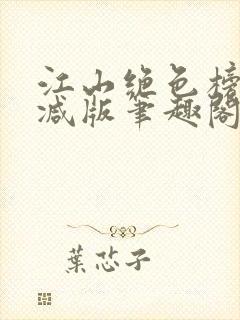 江山绝色榜
减版笔趣阁
葉芯子